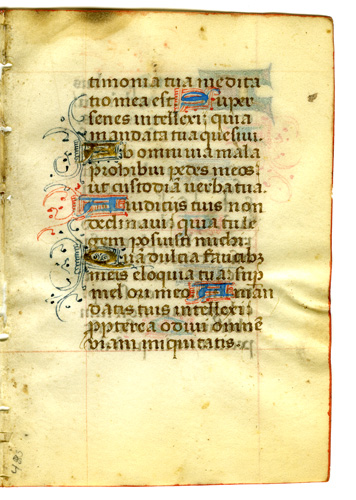 timonia tua medita
tio mea est Super
senes intellexi: quia
mandata tua quesivi.
Ab omni via mala
prohibui pedes meos:
ut custodia verba tua.
A iudiciis tuis non
declinavi: quia tu le
gem posuisti michi.
Qua dulcia faucibz
meis eloquia tua: sup
mel ori meo A man
datis tuis intellexi:
ppterea odivi omnē
viam iniquitatis.
483